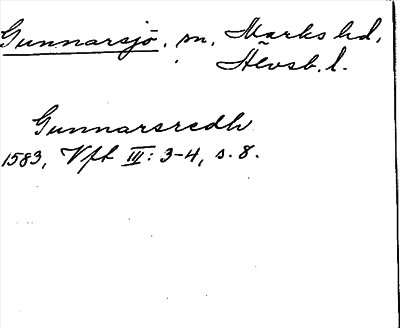 Gunnarsjö, sn, Marks hd,
Älvsb. l.
Gunnarsredh
1583, Vft III: 3-4, s. 8.